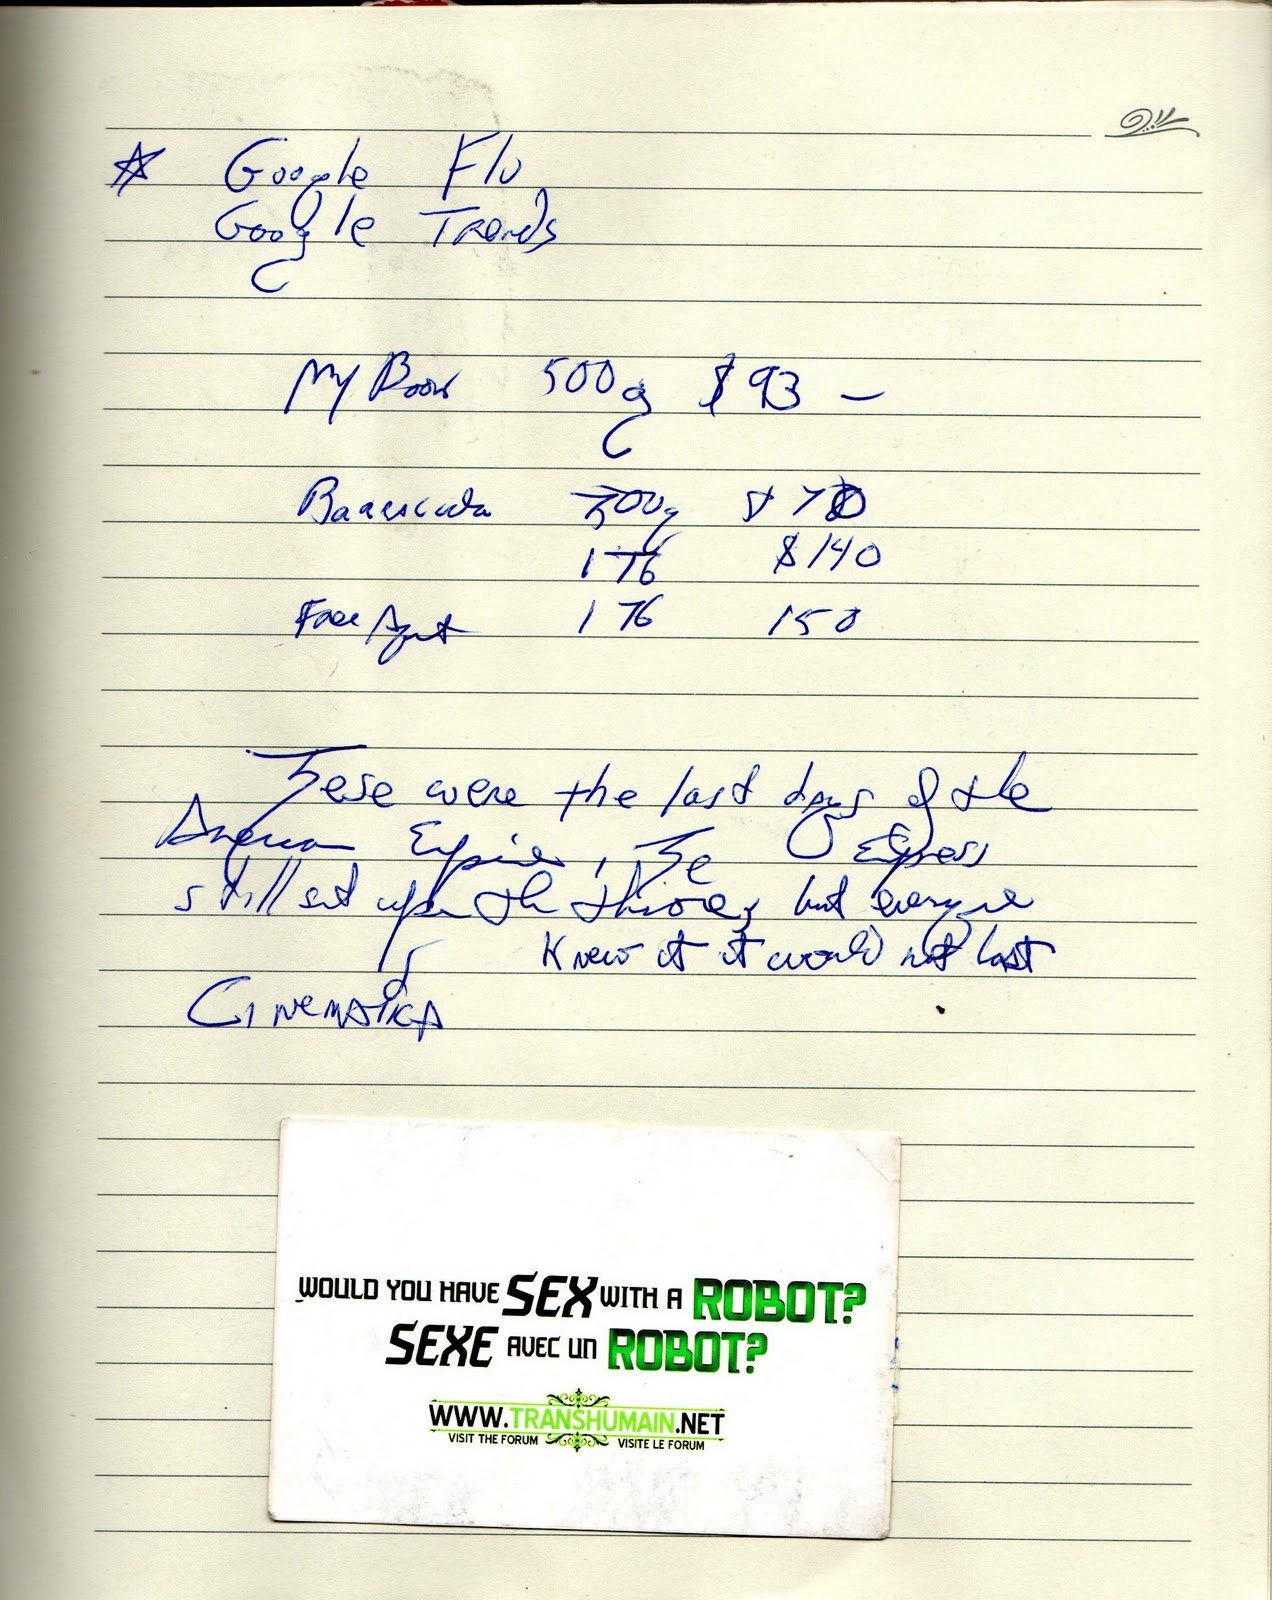 Google Flu
Google Trends
My Book 500g $93 –
Barracuda 500g $70
1 TB $140
Free Agent 1 TB 150
These were the last days of the
American Empire, The Empress
still sat upon the throne, but everyone
knew it it would not last
CINEMATICA
WOULD YOU HAVE SEX WITH A ROBOT?
SEXE AVEC UN ROBOT?
WWW.TRANSHUMAIN.NET
VISIT THE FORUM VISITE LE FORUM